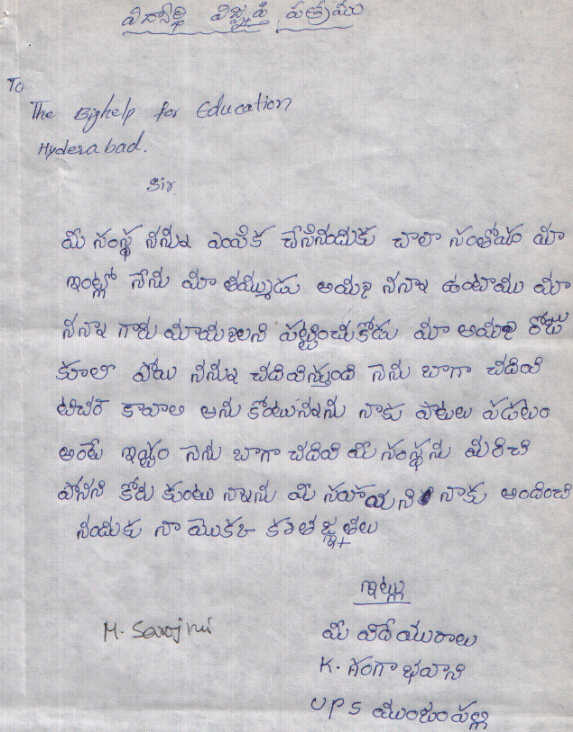 విద్యార్థి విజ్ఞప్తి పత్రము
To
The Bighelp for Education
Hyderabad.
Sir
మీ సంస్థ నన్ను ఎంపిక చేసినందుకు చాలా సంతోషం మా
ఇంట్లో నేను మా తమ్ముడు అమ్మ నాన్న ఉంటాము మా
నాన్న గారు మమ్మలని పట్టించుకోడు మా అమ్మ రోజు
కూలి పోయి నన్ను చదివిస్తుంది నేను బాగా చదివి
టీచర్ కావాల అను కోంటున్నాను నాకు పాటలు పడటం
అంటే ఇష్టం నేను బాగా చదివి మీ సంస్థను మరిచి
పోనని కోరు కుంటు న్నాను మీ సహాయని నాకు అందించి
నందుకు నా మొకటి కృతజ్ఞతలు
ఇట్లు
M. Sarojini
మీ విదేయురాలు
K. గంగా భవాని
UPS ముంజంపల్లి